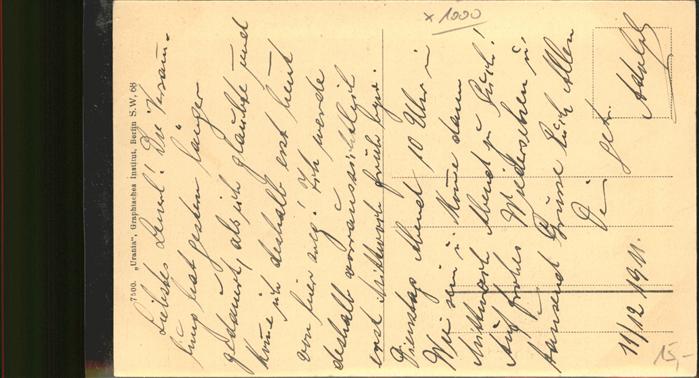 7500. „Urania", Graphisches Institut, Berlin S.W. 68
Die Versamm-
lung hat gestern länger
gedauert, als ich glaubte und
komme ich deshalb erst heut
von hier weg. Ich werde
deshalb voraussichtlich
erst Mittwoch früh bezw.
Dienstag Abend 10 Uhr in
sein u. komme dann
Mittwoch Abend zu Euch.
Auf frohes Wiedersehen u.
tausend Grüsse Euch Allen
Dein
11/12 1911.
x 1000
15,-